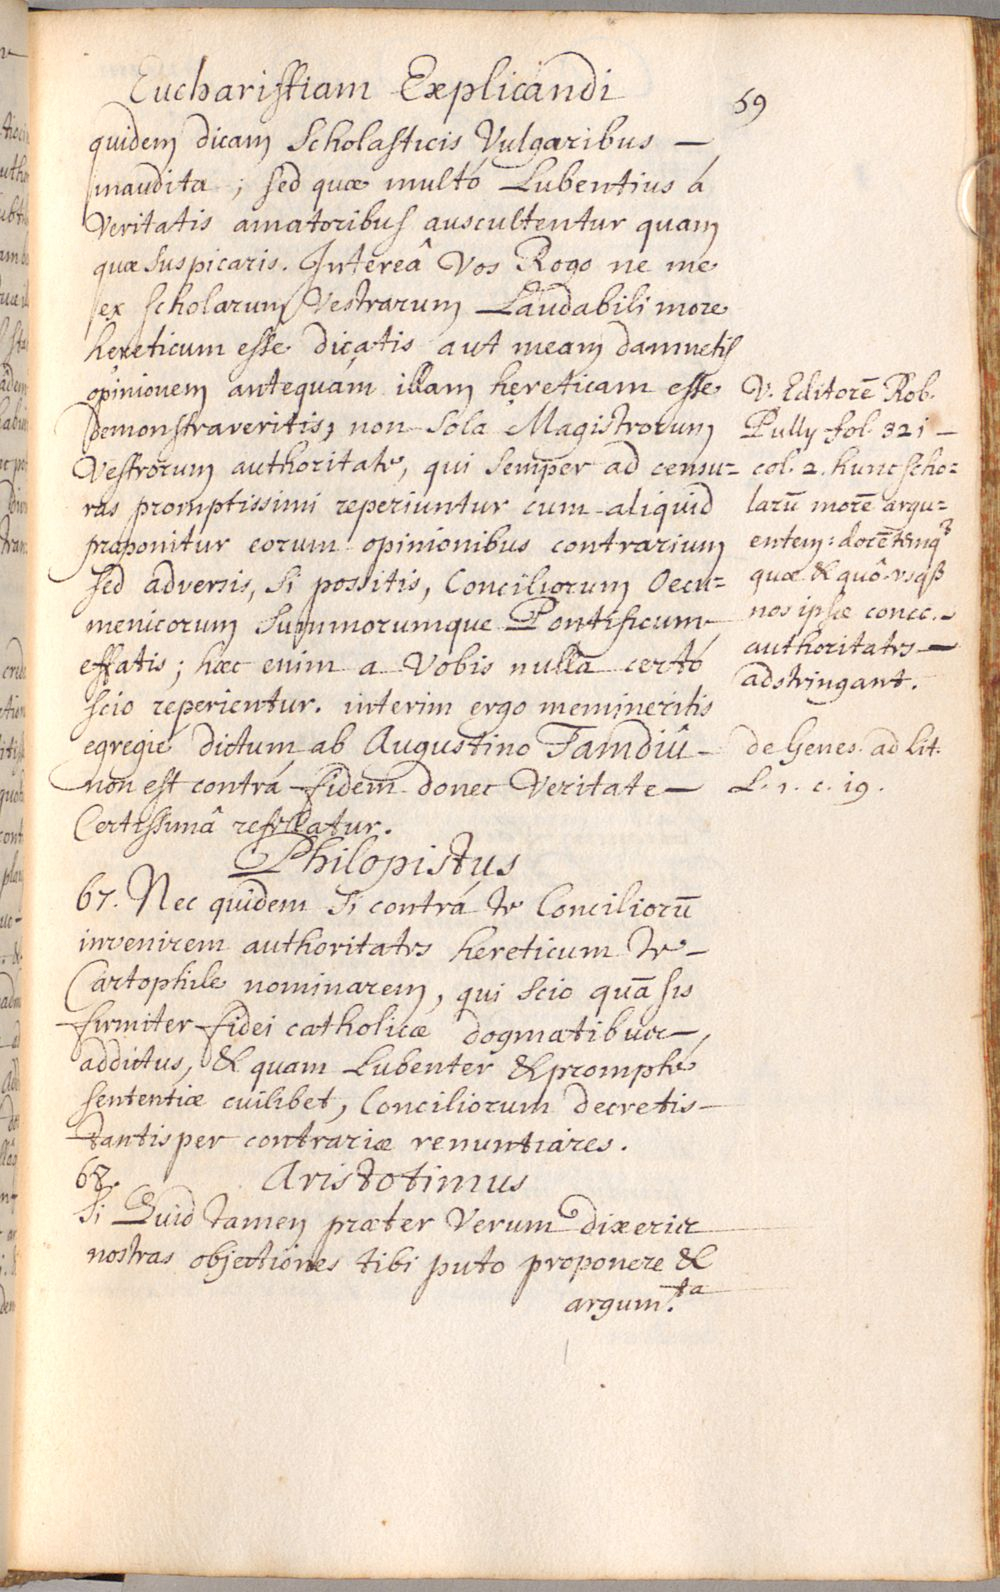 Eucharistiam Explicandi
59
quidem dicam Scholasticis Vulgaribus —
inaudita ; sed quæ multó Lubentius á
Veritatis amatoribus auscultentur quam
quæ suspicaris. Intereâ Vos Rogo ne me
ex scholarum Vestrarum Laudabili more
hereticum esse dicatis aut meam damnetis
opinionem antequám illam hęreticam esse
demonstraveritis, non sola Magistrorum
Vestrorum authoritate, qui semper ad censu=
ras promptissimi reperiuntur cum aliquid
proponitur eorum opinionibus contrarium
sed adversis, si possitis, Conciliorum Oecu=
menicorum Summorumque Pontificum
effatis ; hæc enim a Vobis nulla certó
scio reperientur. interim ergo memineritis
egregie dictum ab Augustino Tamdiû —
non est contrá fidem donec Veritate —
Certissimâ refellatur.
V. Editorē Rob.
Pully fol. 321 —
col. 2. hunc scho=
larū morē argu=
entem:
quæ & quô
nos ipsæ conec. —
authoritates —
adstringant.
de Genes. ad Lit.
L. 1. c. 19.
Philopistus
67. Nec quidem si contrá te Conciliorū
invenirem authoritates hereticum te —
Cartophile nominarem, qui scio quā sis
firmiter fidei catholicæ dogmatibus —
addictus, & quam Lubenter & prompte
sententiæ cuilibet, Conciliorum decretis —
tantisper contrariæ renuntiares.
68. Aristotimus
Si Quid tamen præter Verum dixeris
nostras objectiones tibi puto proponere &
argum.ta